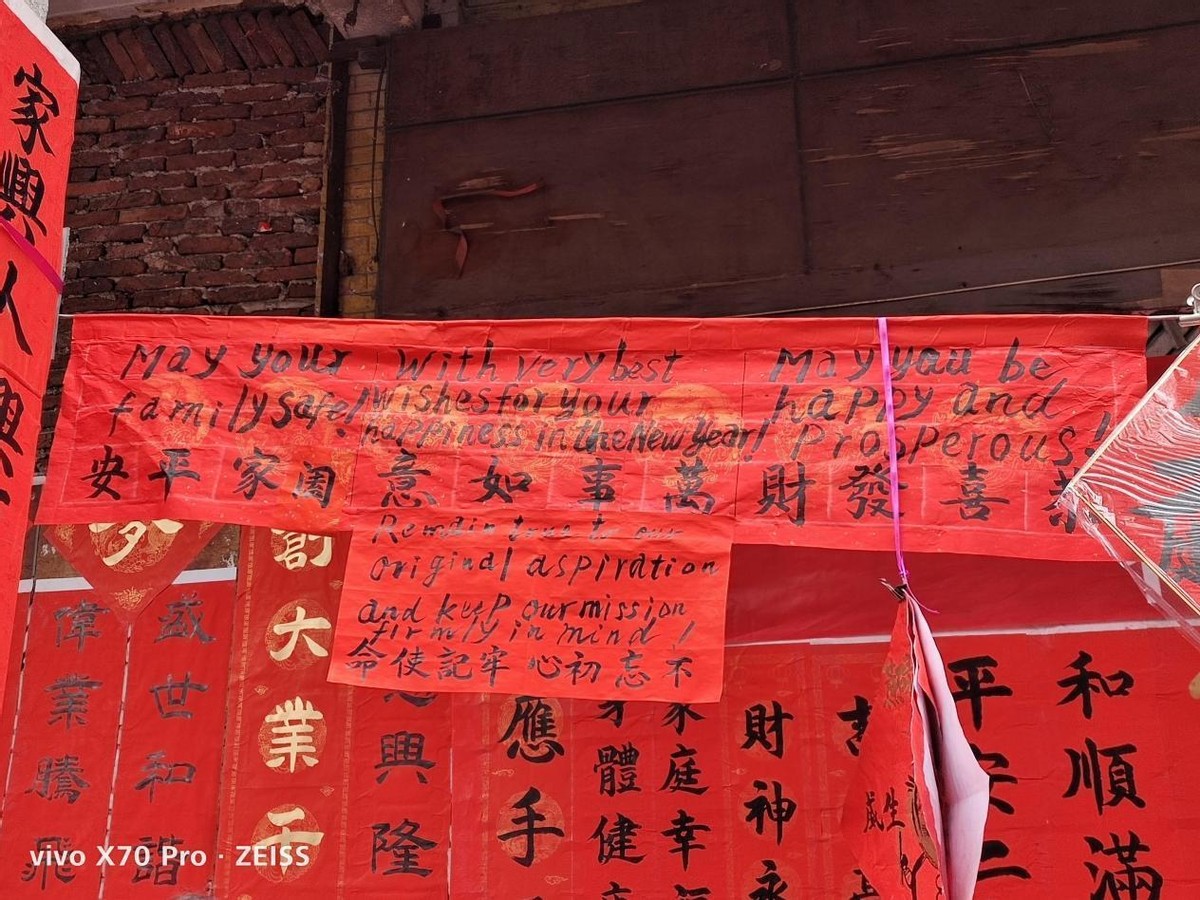 May your
family safe!
安平家阖
With very best
wishes for your
happiness in the New Year!
意如事萬
May you be
happy and
prosperous!
財發喜恭
Remain true to our
original aspiration
and keep our mission
firmly in mind!
命使記牢心初忘不
家興人興
偉業騰飛
盛世和諧
創大業千
興隆
應手
體健
家庭幸
財神永
平安二
和順滿
vivo X70 Pro · ZEISS